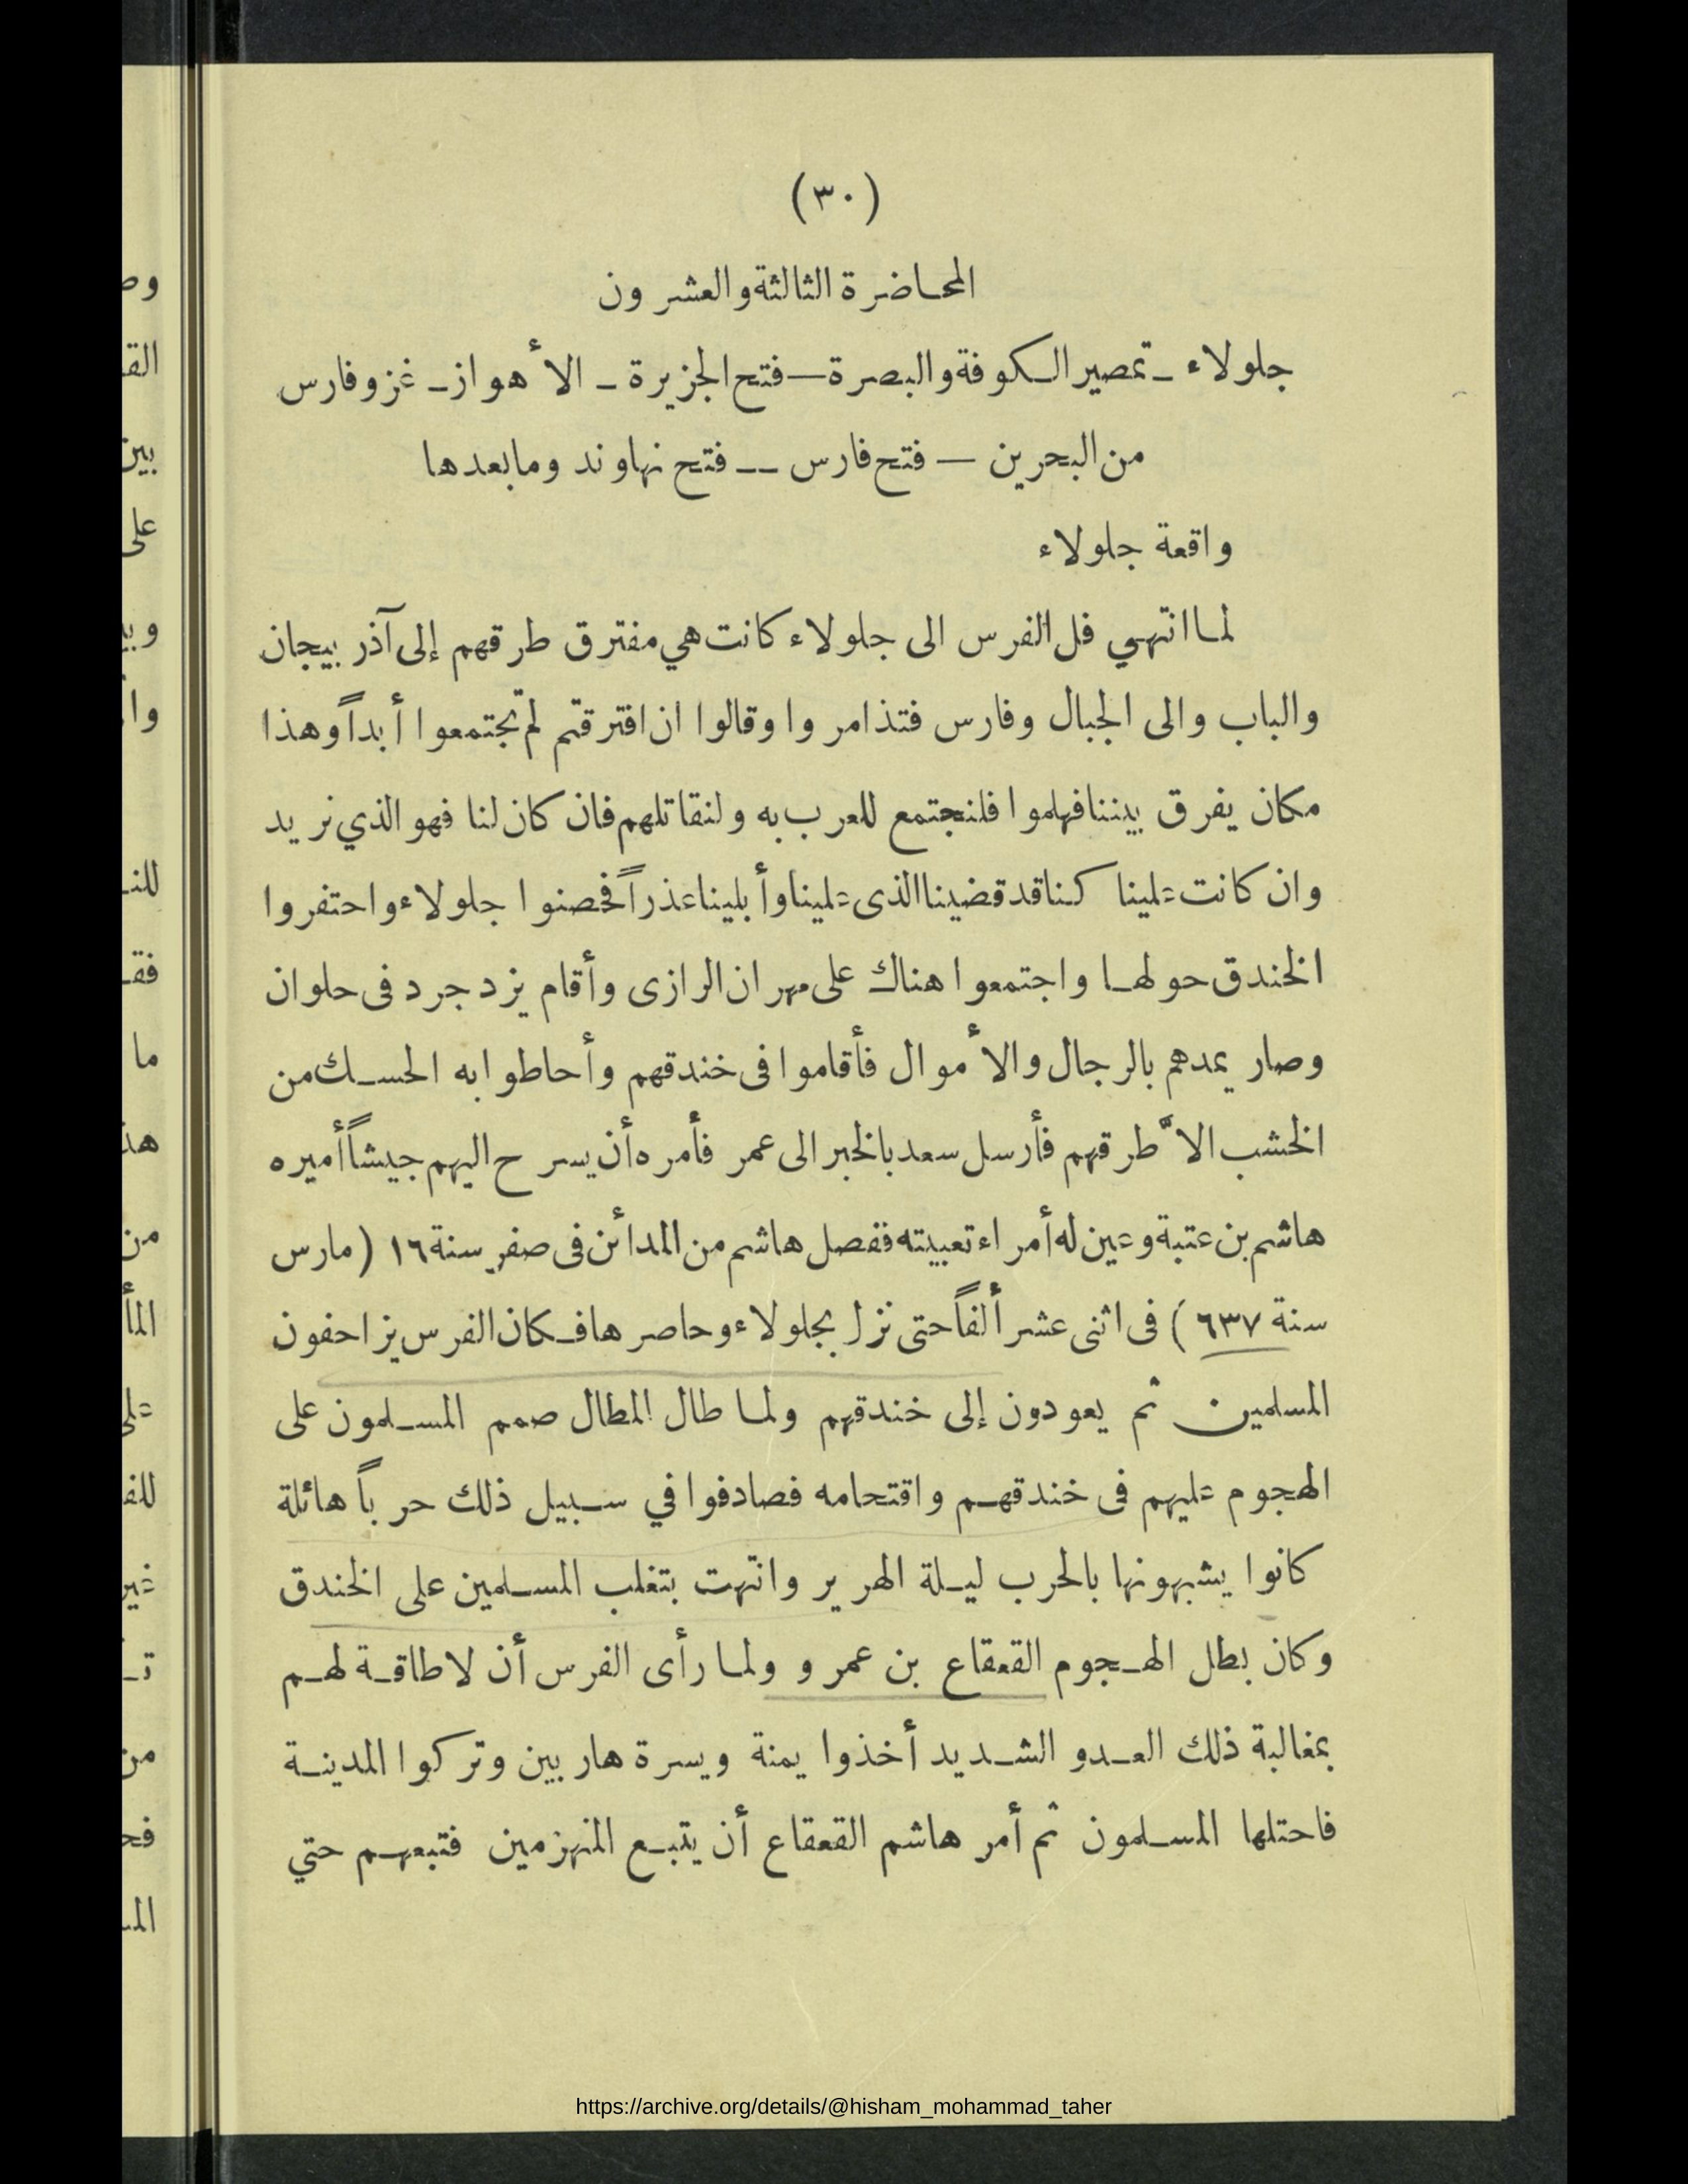 (٣٠)
المحاضرة الثالثة والعشرون
جلولاء ــ تمصير الكوفة والبصرة ــ فتح الجزيرة ــ الأهواز ــ غزو فارس
من البحرين ــ فتح فارس ــ فتح نهاوند وما بعدها
واقعة جلولاء
لما انتهي فل الفرس الى جلولاء كانت هي مفترق طرقهم إلى آذربيجان
والباب والى الجبال وفارس فتذامروا وقالوا ان افترقتم لم تجتمعوا أبداً وهذا
مكان يفرق بيننا فهلموا فلنجتمع للعرب به ولنقاتلهم فان كان لنا فهو الذي نريد
وان كانت علينا كنا قد قضينا الذى علينا وأبلينا عذراً فحصنوا جلولاء واحتفروا
الخندق حولها واجتمعوا هناك على مهران الرازى وأقام يزدجرد فى حلوان
وصار يمدهم بالرجال والأموال فأقاموا فى خندقهم وأحاطوا به الحسك من
الخشب الاّ طرقهم فأرسل سعد بالخبر الى عمر فأمره أن يسرح اليهم جيشاً أميره
هاشم بن عتبة وعين له أمراء تعبيته ففصل هاشم من المدائن فى صفر سنة ١٦ (مارس
سنة ٦٣٧) فى اثنى عشر ألفاً حتى نزل بجلولاء وحاصرها فكان الفرس يزاحفون
المسلمين ثم يعودون إلى خندقهم ولما طال المطال صمم المسلمون على
الهجوم عليهم فى خندقهم واقتحامه فصادفوا في سبيل ذلك حرباً هائلة
كانوا يشبهونها بالحرب ليلة الهرير وانتهت بتغلب المسلمين على الخندق
وكان بطل الهجوم القعقاع بن عمرو ولما رأى الفرس أن لا طاقة لهم
بمغالبة ذلك العدو الشديد أخذوا يمنة ويسرة هاربين وتركوا المدينة
فاحتلها المسلمون ثم أمر هاشم القعقاع أن يتبع المنهزمين فتبعهم حتي
https://archive.org/details/@hisham_mohammad_taher